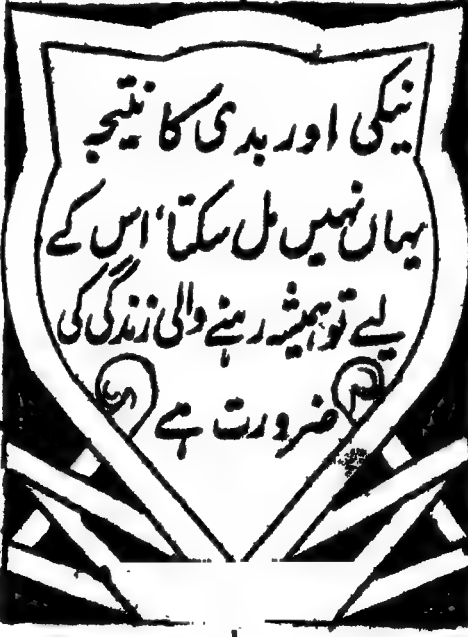 نیکی اور بدی کا نتیجہ
یہاں نہیں مل سکتا، اس کے
لیے تو ہمیشہ رہنے والی زندگی کی
ضرورت ہے